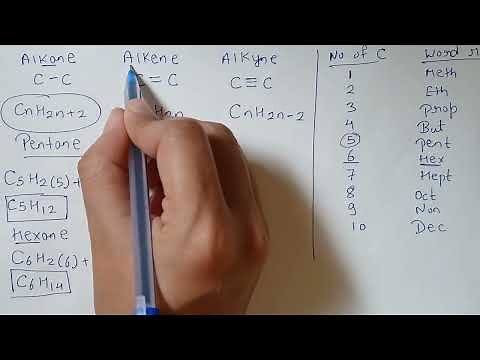 Alkane Alkene Alkyne
C – C C = C C ≡ C
CnH2n+2 H2n CnH2n-2
Pentane
C5H2(5) +
C5H12
Hexane
C6H2(6) +
C6H14
No of C Word
1 Meth
2 Eth
3 Prop
4 But
5 Pent
6 Hex
7 Hept
8 Oct
9 Non
10 Dec